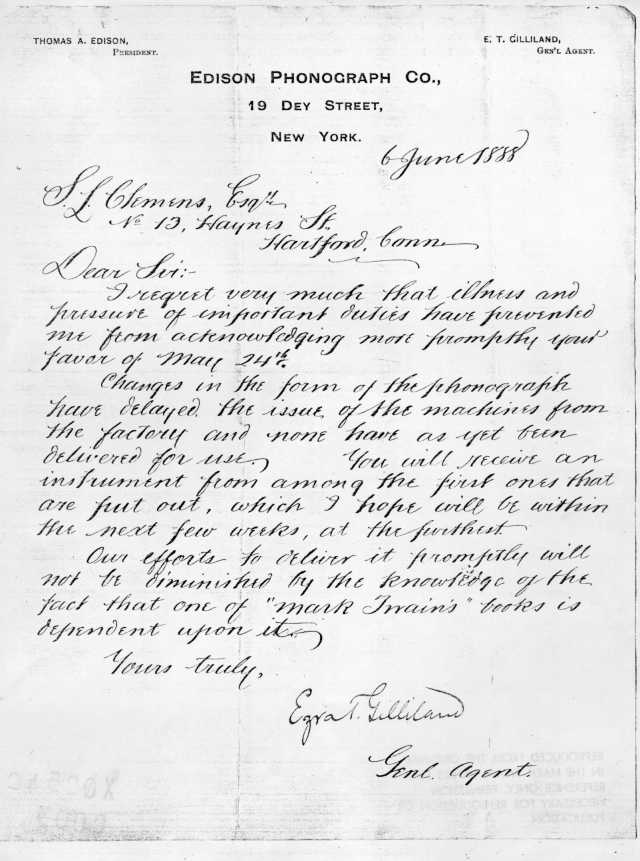 THOMAS A. EDISON,
PRESIDENT.
E. T. GILLILAND,
GEN'L AGENT.
EDISON PHONOGRAPH CO.,
19 DEY STREET,
NEW YORK.
6 June 1888
S. L. Clemens, Esqre.
No 13, Haynes St.
Hartford, Conn.
Dear Sir:-
I regret very much that illness and
pressure of important duties have prevented
me from acknowledging more promptly your
favor of May 24th.
Changes in the form of the phonograph
have delayed the issue of the machines from
the factory and none have as yet been
delivered for use. You will receive an
instrument from among the first ones that
are put out, which I hope will be within
the next few weeks, at the furthest.
Our efforts to deliver it promptly will
not be diminished by the knowledge of the
fact that one of "Mark Twain's" books is
dependent upon it.
Yours truly,
Ezra T. Gilliland
Genl. Agent.